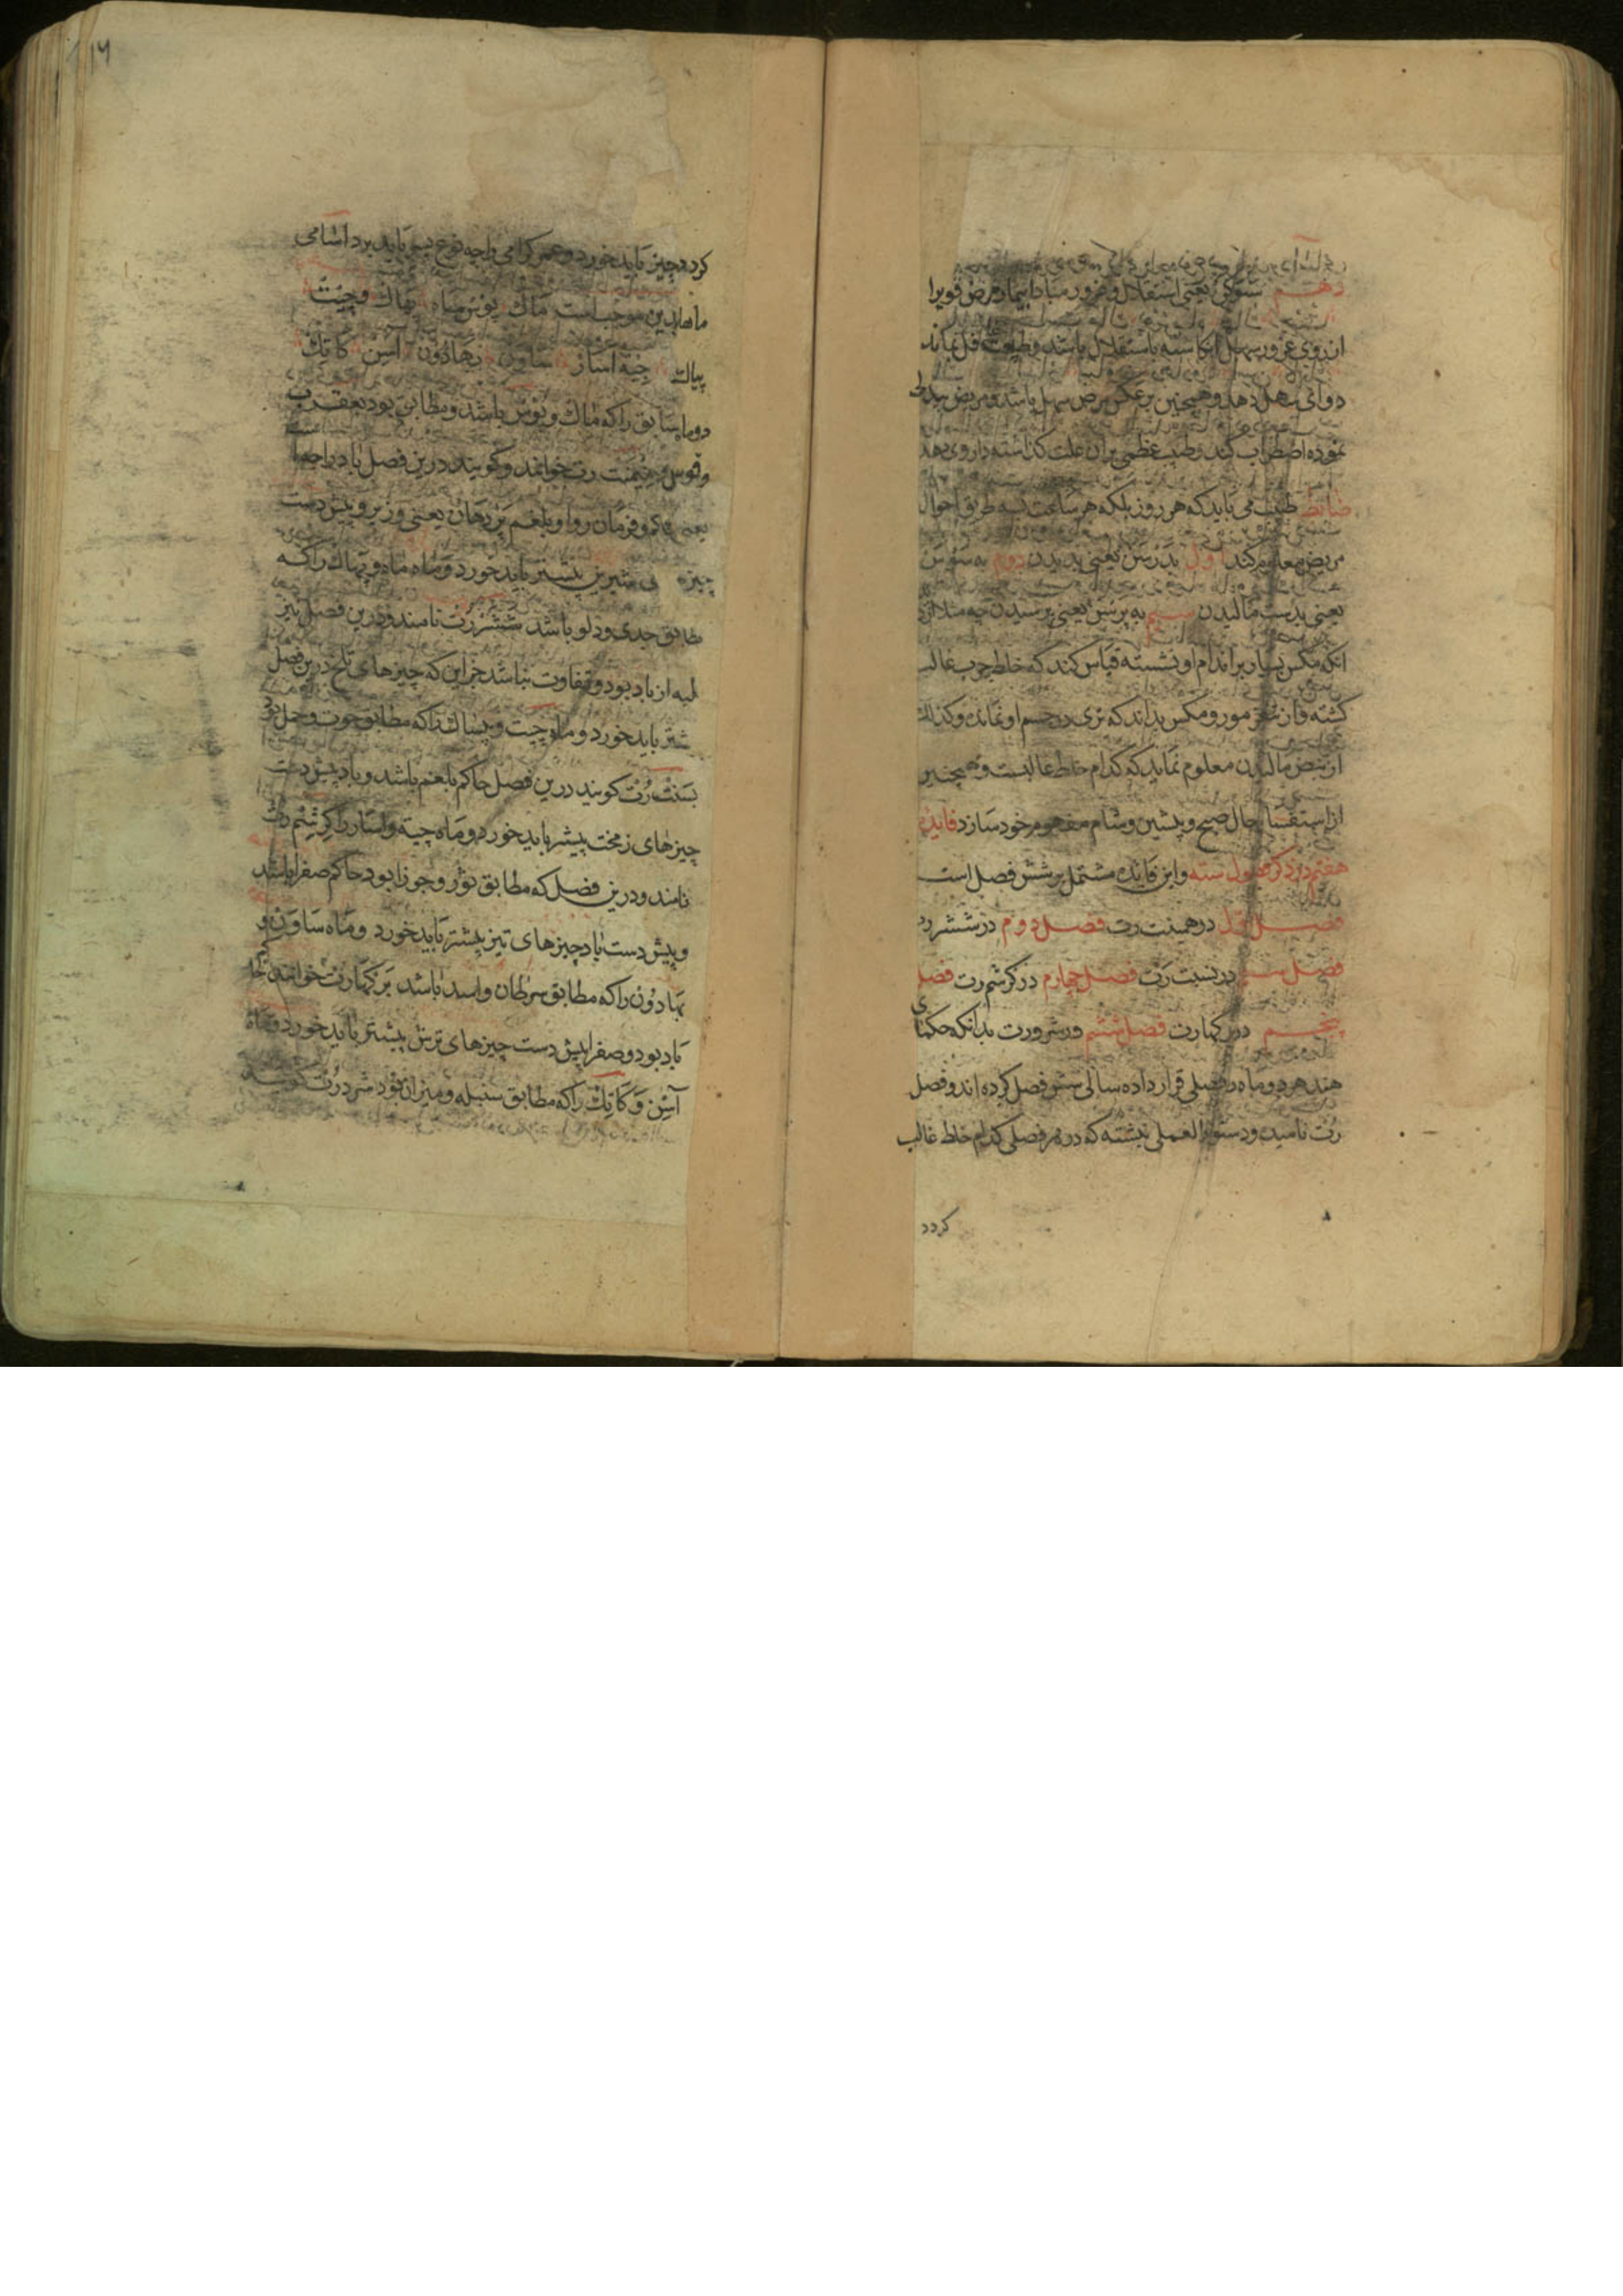 دهم ستوکی یعنی استقلال و غرور مبادا بیمار مرض قویرا
از روی غرور سهل انکاشته باستقلال باشد و طبیب غافل بماند
دوای سهل دهد و همچنین برعکس مرض سهل باشد و مریض بیدلی
نموده اضطراب کند و طبیب عظمی بران علت کذاشته داروی دهد
ضابطه طبیب می باید که هر روز بلکه هر ساعت بسه طریق احوال
مریض معلوم کند اول بدرسن یعنی بدیدن دوم به سفرسن
یعنی بدست مالیدن سیم به پرسن یعنی پرسیدن چه مثلا از
انکه مکس بسیار بر اندام او نشسته قیاس کند که خلط چرب غالب
کشته و از مور و مکس بداند که تری در جسم او نمانده و کذلک
از نبض مالیدن معلوم نماید که کدام خلط غالبست و همچنین
از استفسار حال صبح و پیشین و شام مفهوم خود سازد فایده
هفتم در ذکر فصول سته و این فایده مشتمل بر شش فصل است
فصل اول در همینت رت فصل دوم در ششر رت
فصل سیم در بسنت رت فصل چهارم در کرشم رت فصل
پنجم در برکهارت فصل ششم در شرورت بدانکه حکمای
هند هر دو ماه را فصلی قرار داده سالی شش فصل کرده اند و فصل
رت نامیده و دستور العملی نبشته که در هر فصلی کدام خلط غالب
کردد
کردد چیز باید خورد و عمر کرامی را چه نوع بسر باید برد اسامی
ماهها بدین موجب است ماک پوس ماه بهاک و چیت
پیاک جیته اساز ساون بهادون آسن کاتک
دو ماه سابق را که ماک و پوس باشد و مطابق بود بعقرب
و قوس همینت رت خوانند و کویند درین فصل باد راجه
یعنی حاکم و فرمان روا و بلغم پردهان یعنی وزیر و پیش دست
چیزهای شیرین بیشتر باید خورد و ماه ماه و بهاک را که
مطابق جدی و دلو باشد ششر رت نامند و درین فصل نیز
غلبه از باد بود و تفاوت نباشد جز این که چیزهای تلخ درین فصل
بیشتر باید خورد و ماه چیت و بیساک را که مطابق حوت و حمل بود
بسنت رت کویند درین فصل حاکم بلغم باشد و باد پیش دست
چیزهای زمخت بیشتر باید خورد و ماه جیته و اساز را کرشم رت
نامند و درین فصل که مطابق ثور و جوزا بود حاکم صفرا باشد
و پیش دست باد چیزهای تیز بیشتر باید خورد و ماه ساون و
بهادون را که مطابق سرطان و اسد باشد برکهارت خوانند حاکم
باد بود و صفرا پیش دست چیزهای ترش بیشتر باید خورد و ماه
آسن و کاتک را که مطابق سنبله و میزان بود شرد رت کویند